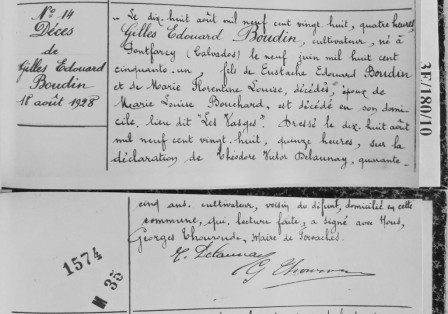 N° 14
Décès
de
Gilles Edouard
Boudin
18 août 1928
Le dix-huit août mil neuf cent vingt-huit, quatre heures,
Gilles Edouard Boudin, cultivateur, né à
Fontfarcy (Calvados) le neuf juin mil huit cent
cinquante-un fils de Eustache Edouard Boudin
et de Marie Florentine Louise, décédés, époux de
Marie Louise Bouchard, est décédé en son domi-
cile, lieu dit "Les Vasges". Dressé le dix-huit août
mil neuf cent vingt-huit, quinze heures, sur la
déclaration de Théodore Victor Delaunay, quarante-
cinq ans, cultivateur, voisin du défunt, domicilié en cette
commune, qui, lecture faite, a signé avec Nous,
Georges Thouroude, Maire de
T. Delaunay
G Thouroude
3E/180/10
1574
M 35